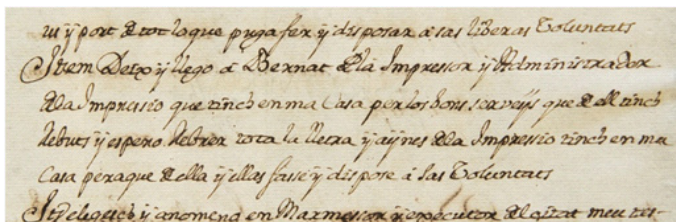 y port de tot lo que puga fer y disposar a sas liberas Voluntats
Item Deixo y llego a Bernat Pla Impressor y Administrador
de la Impressio que tinch en ma Casa per los bons serveys que de ell tinch
rebuts y espero rebrer tota la lletra y aÿnes de la Impressio tinch en ma
Casa peraque de ella y ellas fasse y dispose a sas Voluntats
elegesch y anomeno en Marmessor y executor del meu